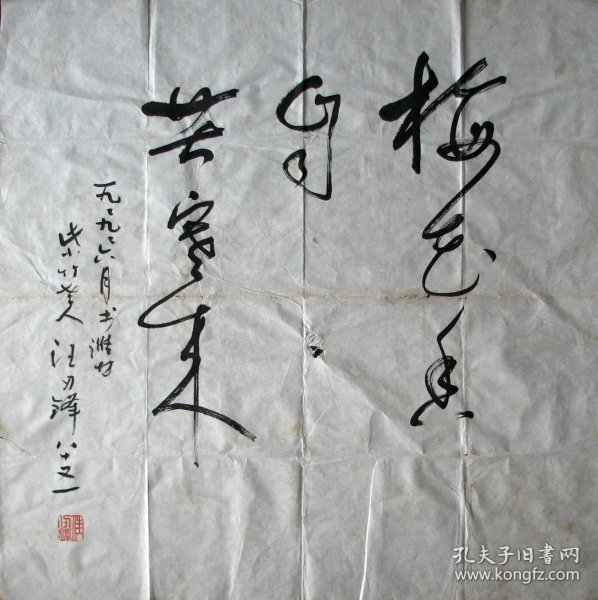 梅花香
自
苦寒来
一九九九六月书潍坊
紫竹老人 汪刃锋 八十又一
孔夫子旧书网
www.kongfz.com